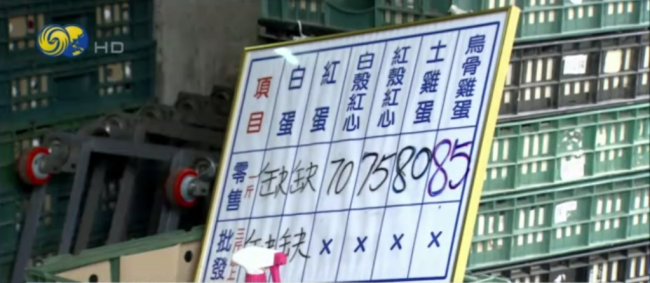 HD
項目 白蛋 紅蛋 白殼紅心 紅殼紅心 土雞蛋 烏骨雞蛋
零售 一斤 缺 缺 70 75 80 85
批發 缺 缺 x x x x